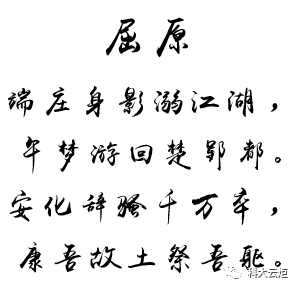 屈原
端庄身影溺江湖，
午梦游回楚郢都。
安化辞骚千万卒，
康吾故土祭吾躯。
科大云炬